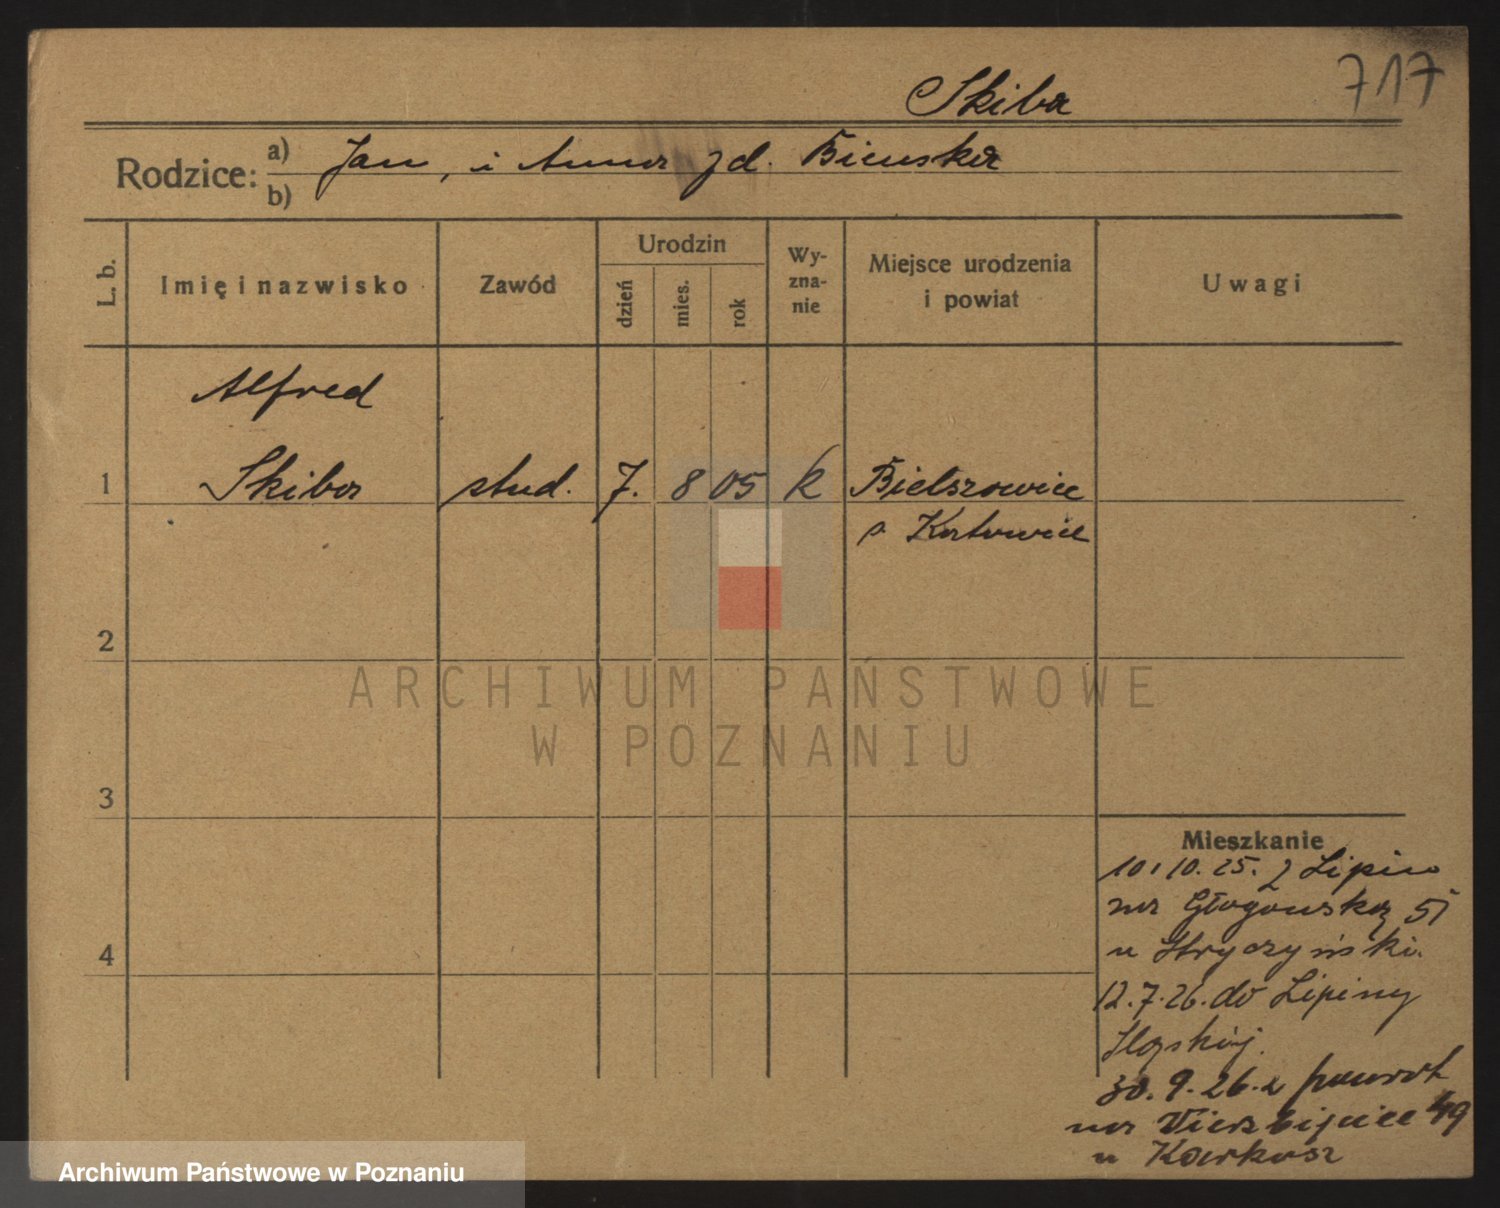 717
Skiba
Rodzice: a) Jan, i Anna zd. Bienska
b)
L. b.
Imię i nazwisko
Zawód
Urodzin
dzień
mies.
rok
Wy-
zna-
nie
Miejsce urodzenia
i powiat
Uwagi
Alfred
1 Skiba stud. 7. 8 05 k Bielszowice
p. Katowice
2
3
4
Mieszkanie
10.10.25. z Lipin
na Głogowską 51
u Stryczyński.
12.7.26. do Lipiny
Śląskiej.
30.9.26. z powrot
na Wierzbięcice 49
u Karkosz
ARCHIWUM PAŃSTWOWE
W POZNANIU
Archiwum Państwowe w Poznaniu